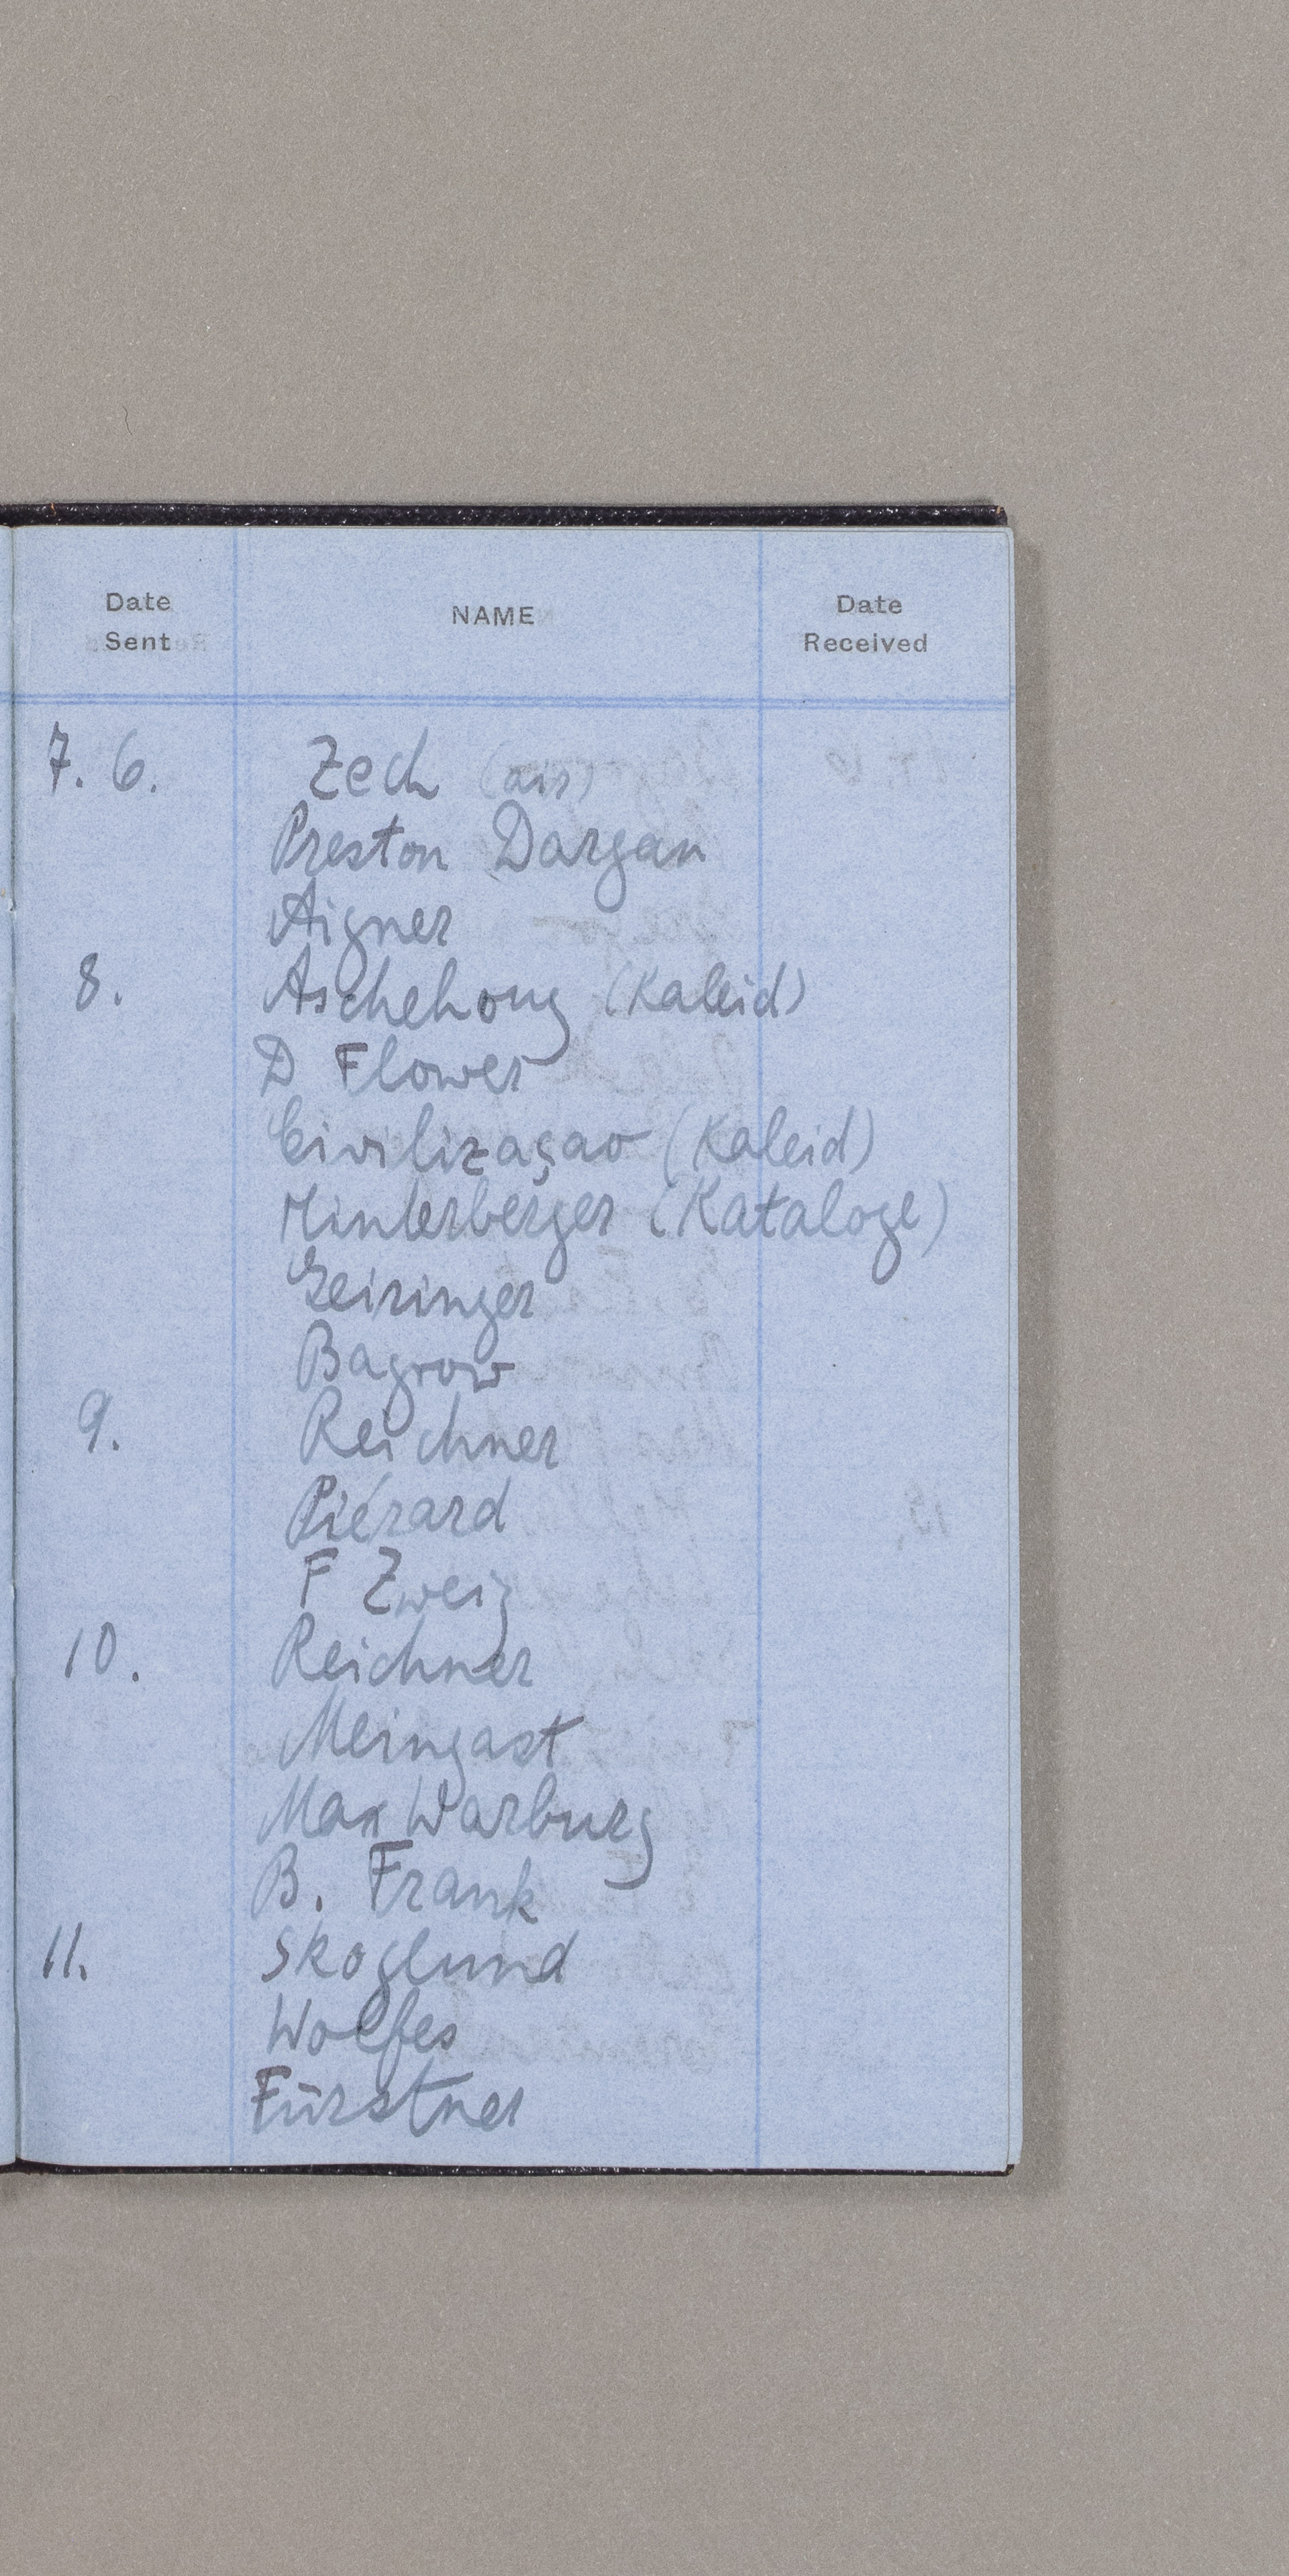 Date Sent NAME Date Received
7. 6. Zech (air)
Preston Dargan
Aigner
8. Aschehoug (Kaleid)
D Flower
Civilizaçao (Kaleid)
Hinterberger (Kataloge)
Geiringer
Bagrow
9. Reichner
Piérard
F Zweig
10. Reichner
Meingast
Max Warburg
B. Frank
11. Skoglund
Wolfes
Fürstner